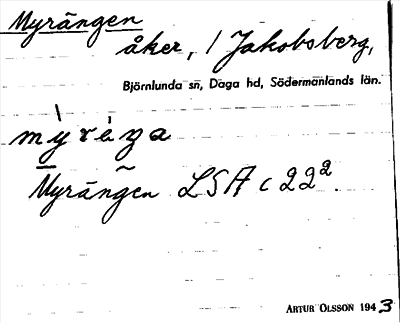 Myrängen
åker, / Jakobsberg,
Björnlunda sn, Daga hd, Södermanlands län.
Myrängen LSA c 22².
ARTUR OLSSON 1943